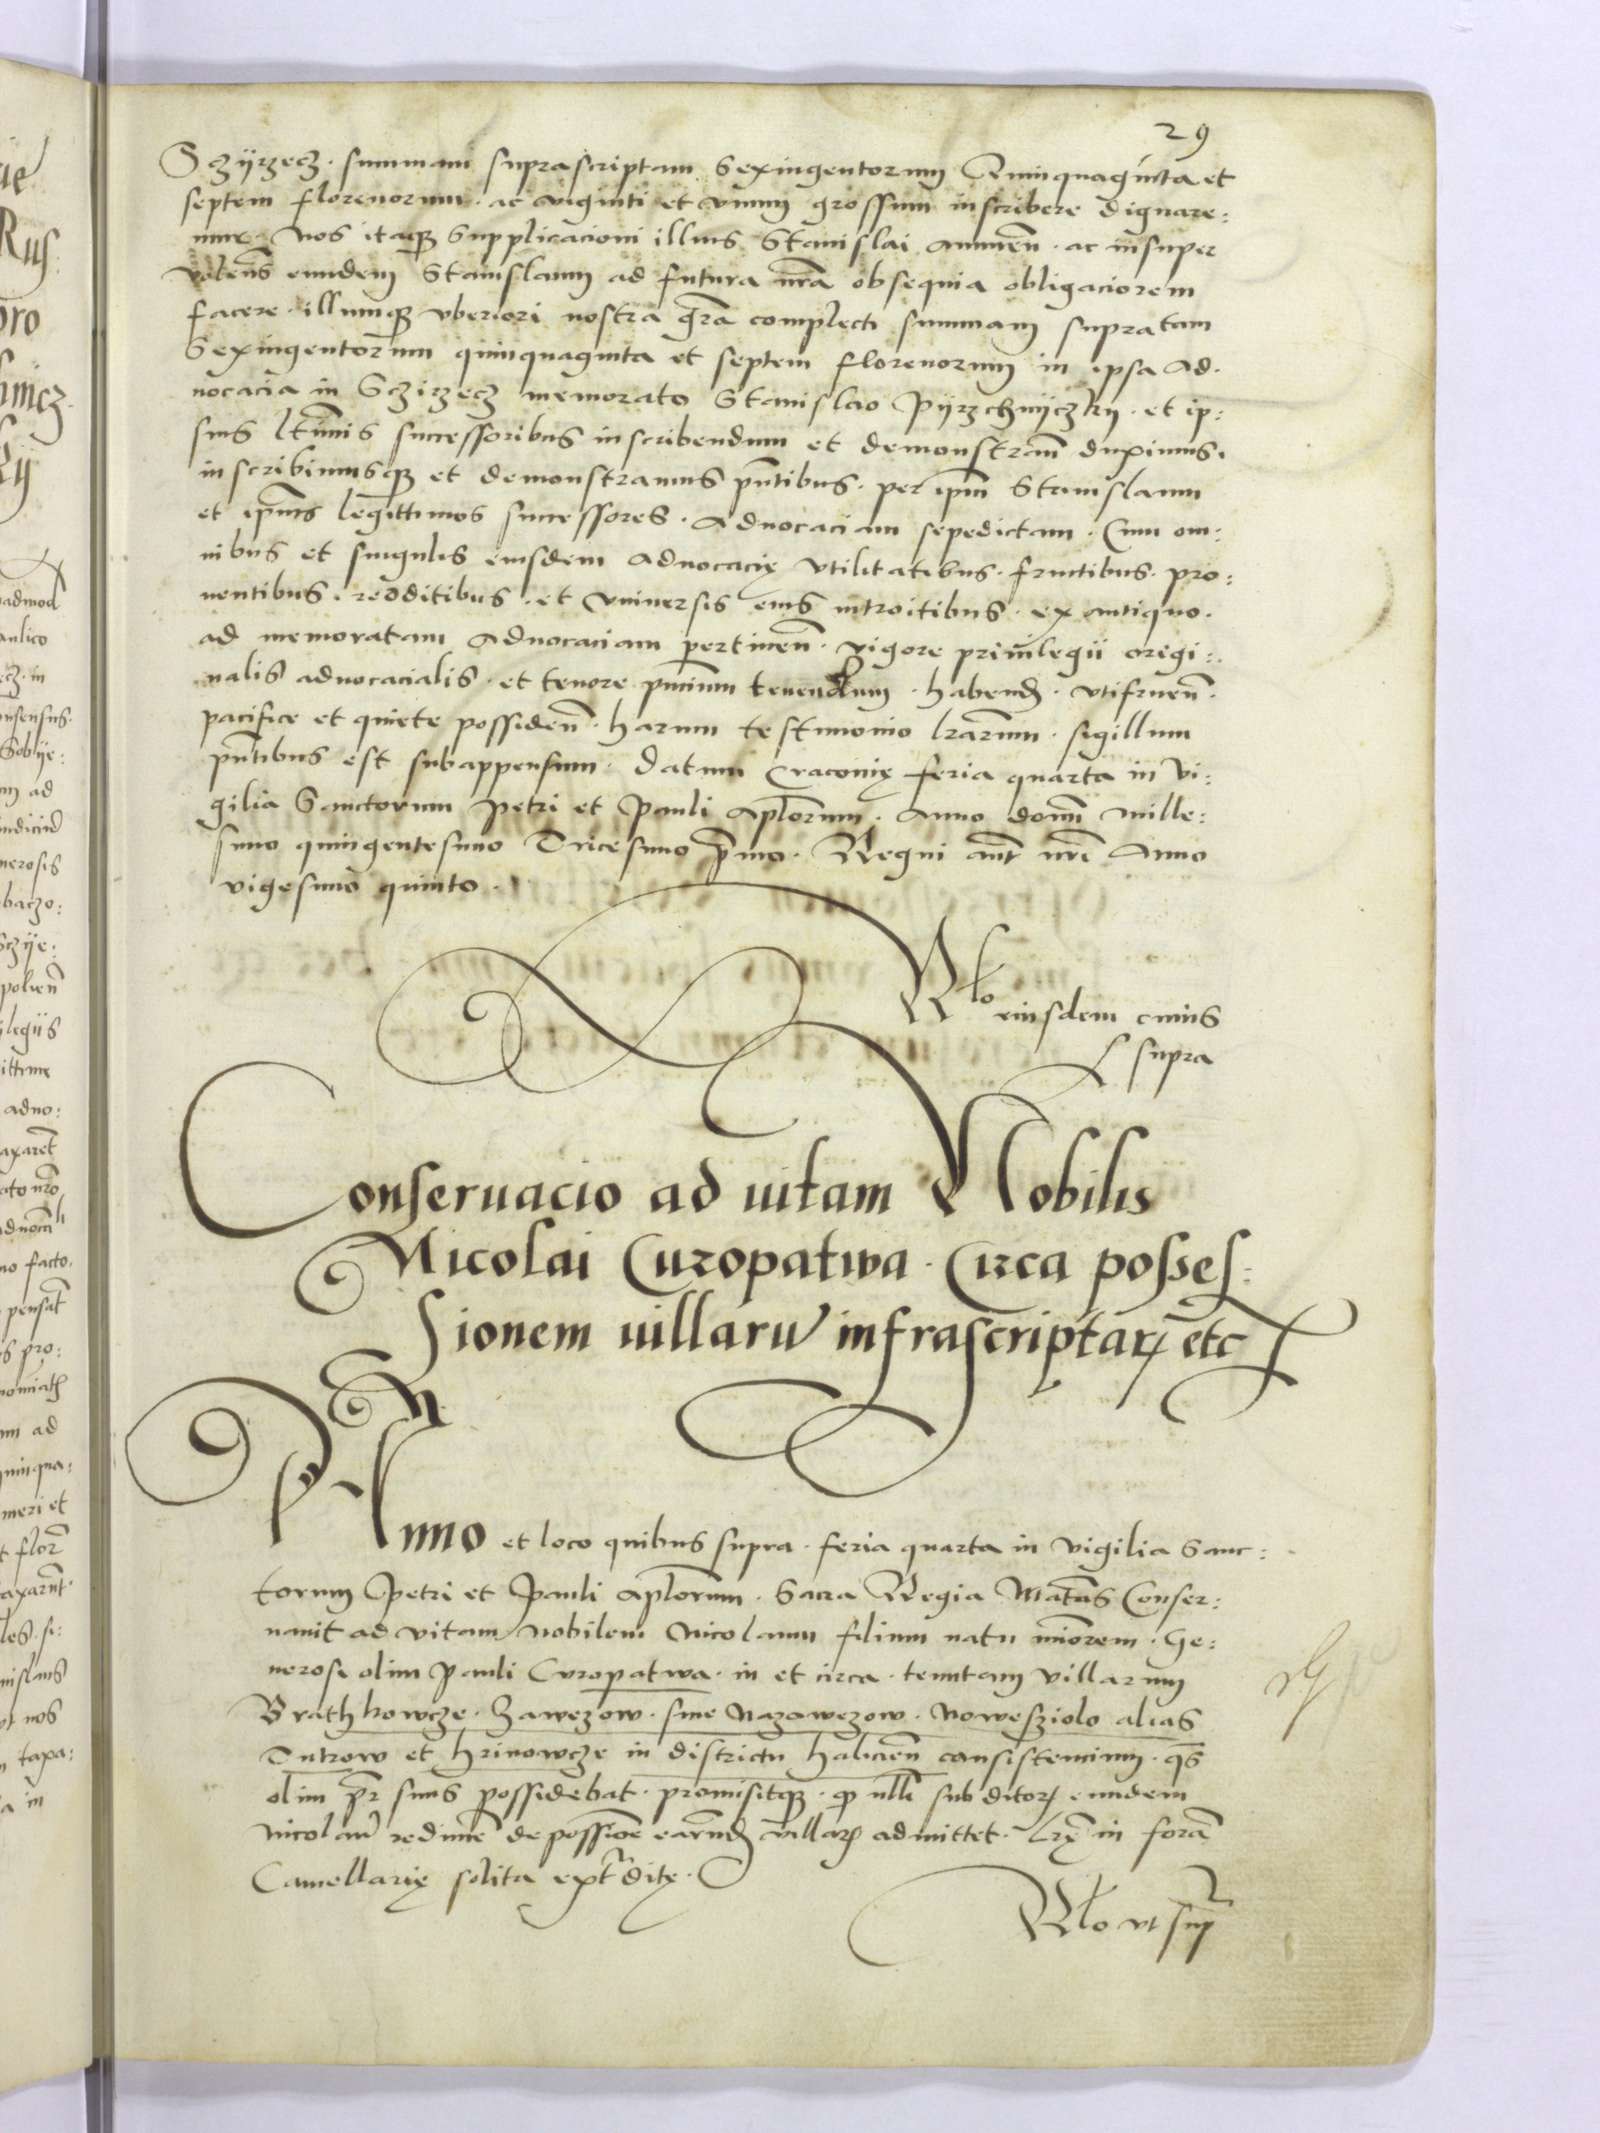 29
Sczÿrzecz · summam suprascriptam Sexingentorum Quinquaginta et
septem florenorum · ac viginti et vnum grossum inscribere dignare:
mur · Nos itaqꝫ Supplicacioni illius Stanislai annuen̄ · ac insuper
volen̄s eundem Stanislaum ad futura nr̄a obsequia obligaciorem
facere · illumqꝫ vberiori nostra gr̄a complecti summam supratam
Sexingentorum quinquaginta et septem florenorum in ipsa Ad·
uocacia in Sczirzecz memorato Stanislao Pÿrzchnÿczky · et ip:
sius ltīmis successoribus inscribendum et demonstran̄ duximus ·
inscribimusqꝫ et demonstramus pn̄tibus · per ipm̄ Stanislaum
et ipīus legittimos successores · Aduocaciam sepedictam · Cum om:
nibus et singulis eiusdem Aduocacię vtilitatibus · fructibus · pro:
uentibus · redditibus · et vniuersis eius introitibus · ex antiquo ·
ad memoratam Aduocaciam pertinen̄ · vigore priuilegii origi:
nalis aduocacialis · et tenore pn̄cium tenendum · habend̄ · vtifruen̄ ·
pacifice et quiete possiden̄ · harum testimonio lr̄arum · sigillum
pn̄tibus est subappensum · Datum Cracouię feria quarta in Vi:
gilia Sanctorum Petri et Pauli Apl̄orum · Anno domī Mille:
simo quingentesimo Tricesimo p̄mo · Regni aūt nr̄i Anno
vigesimo quinto ·
Rl̄o eiusdem cuius
supra
Conseruacio ad uitam Nobilis
Nicolai Curopatwa · Circa posses:
sionem uillarū infrascriptarꝝ etc̄
Anno et loco quibus supra · feria quarta in Vigilia Sanc:
torum Petri et Pauli Apl̄orum · Sacra Regia Mat̄as Conser:
uauit ad vitam Nobilem Nicolaum filium natu mīorem · Ge:
nerosi olim Pauli Curopatwa · in et circa · tenutam villarum
Brathkowcze · Zawezow · siue Nazawezow · Nowesziolo alias
Tutrow et Hrinowcze in districtu Halicien̄ consistencium · qs̄
olim pr̄ suus possidebat · promisitqꝫ · qꝫ nll̄i subditorꝝ eundem
Nicolaū redimē de possiōe earūdꝫ villarꝝ admittet · Lrę in forā
Cancellarię solita expeditę ·
Rl̄o vt sup̄